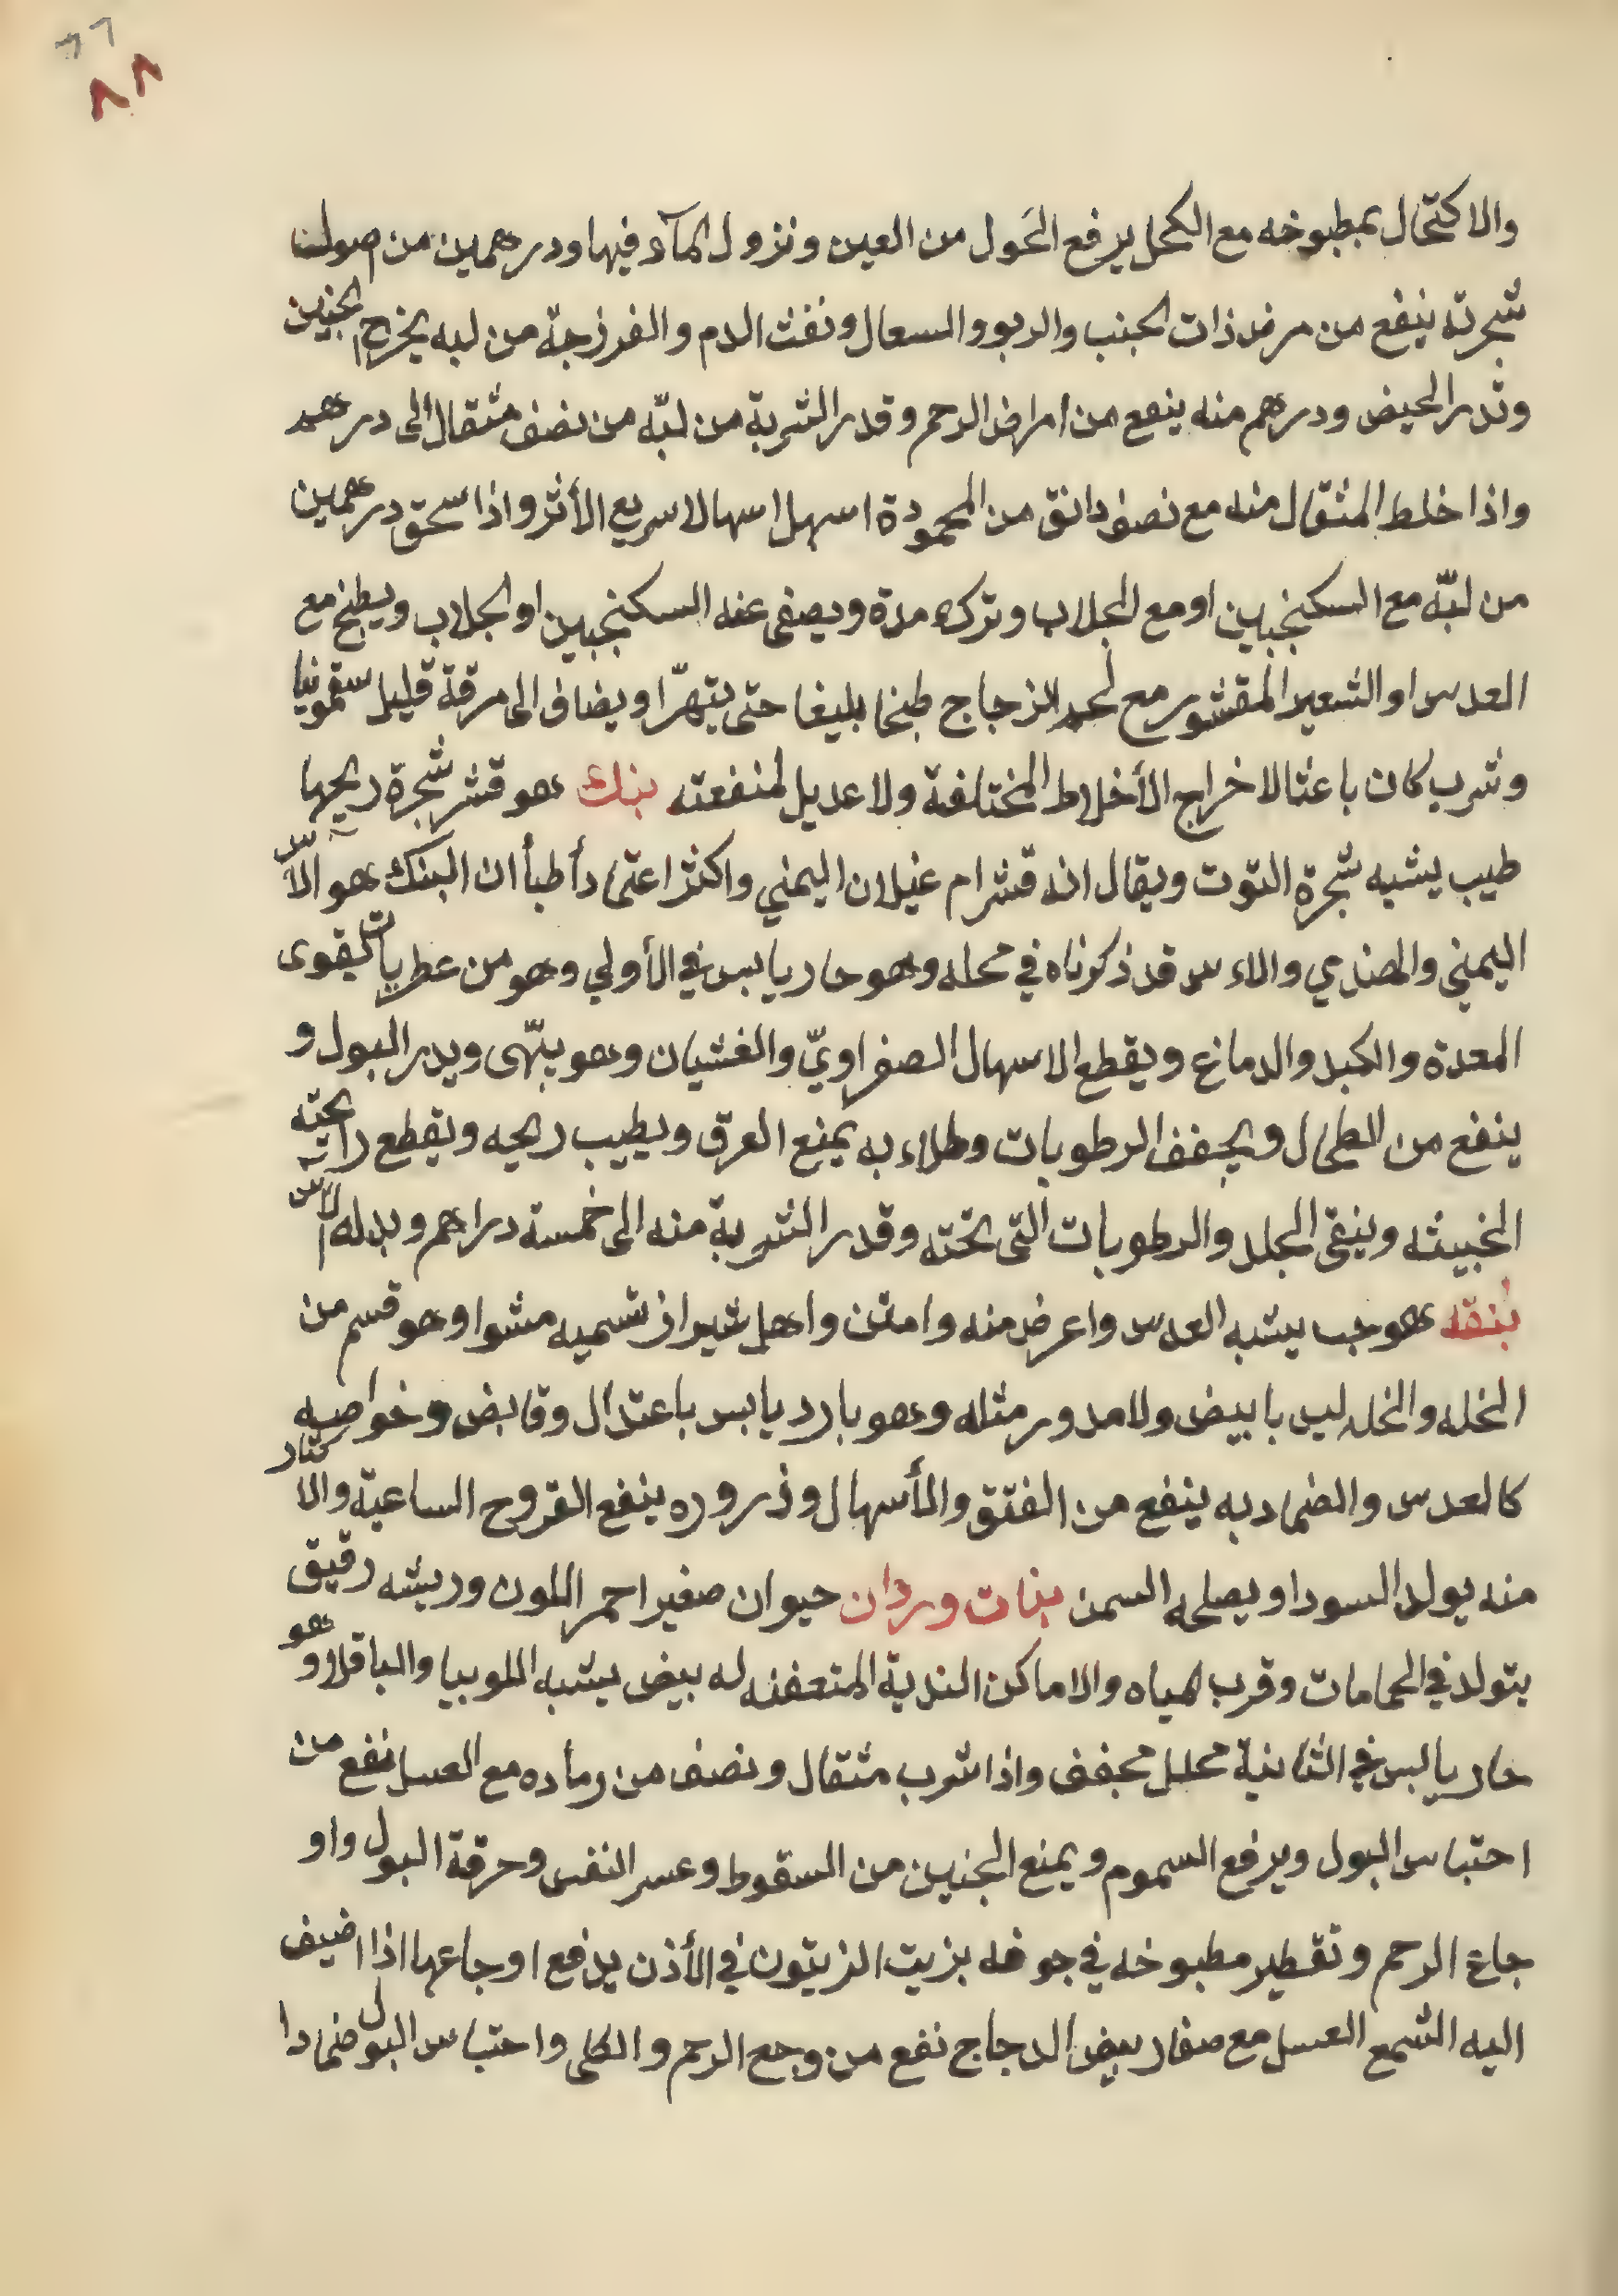 ٦٦
٨٨
والاكتحال بمطبوخه مع الكحل يرفع الحَول من العين ونزول المآء فيها ودرهمين من اصول
شجرته ينفع من مرض ذات الجنب والربو والسعال ونفث الدم والفرزجة من لبه يخرج الجنين
وتدر الحيض ودرهم منه ينفع من امراض الرحم وقدر الشربة من لبّه من نصف مثقال الى درهم
واذا خلط المثقال منه مع نصف دانق من المحمودة اسهل اسهالا سريع الأثر واذا سحق درهمين
من لبّه مع السكنجبين او مع الجلاب وتركه مدة ويصفى عنه السكنجبين او الجلاب ويطبخ مع
العدس او الشعير المقشور مع لحم الزجاج طبخا بليغا حتى يتهرّا ويضاف الى مرقة قليل سقمونيا
وشرب كان باعثا لاخراج الأخلاط المختلفة ولا عديل لمنفعته بنك هو قشر شجرة ريحها
طيب يشبه شجرة التوت ويقال انه قشر ام غيلان اليمني واكثر اعتماد أطبأ ان البنك هو الآس
اليمني والهندي والاءس قد ذكرناه في محله وهو حار يابس في الأولي وهو من عطريات يقوى
المعدة والكبد والدماغ ويقطع الاسهال الصفراويّ والغشيان وهو يبّهى ويدر البول و
ينفع من الطحال ويجفف الرطوبات وطلاء به يمنع العرق ويطيب ريحه ويقطع رائحته
الخبيثه وينقى الجلد والرطوبات التى تحته وقدر الشربة منه الى خمسة دراهم وبدله الآس
بُنقه هو حب يشبه العدس واعرض منه وامتن واهل شيراز تسميه مشوا وهو قسم من
الخله والخله ليس بابيض ولا مدور مثله وهو بارد يابس باعتدال وقابض وخواصه
كالعدس والضماد به ينفع من الفتق والأسهال وذروره ينفع القروح الساعية والاكثار
منه يولد السودا ويصلحه السمن بنات وردان حيوان صغير احمر اللون وريشه رقيق
يتولد في الحمامات وقرب المياه والاماكن الندية المتعفنه له بيض يشبه اللوبيا والباقلا وهو
حار يابس في الثانية محلل مجفف واذا شرب مثقال ونصف من رماده مع العسل نفع من
احتباس البول ويرفع السموم ويمنع الجنين من السقوط وعسر النفس وحرقة البول واو
جاع الرحم وتقطير مطبوخه في جوفه بزيت الزيتون في الأذن يدفع اوجاعها اذا اضيف
اليه الشمع العسل مع صفار بيض الدجاج نفع من وجع الرحم والكلى واحتباس البول ضمادا